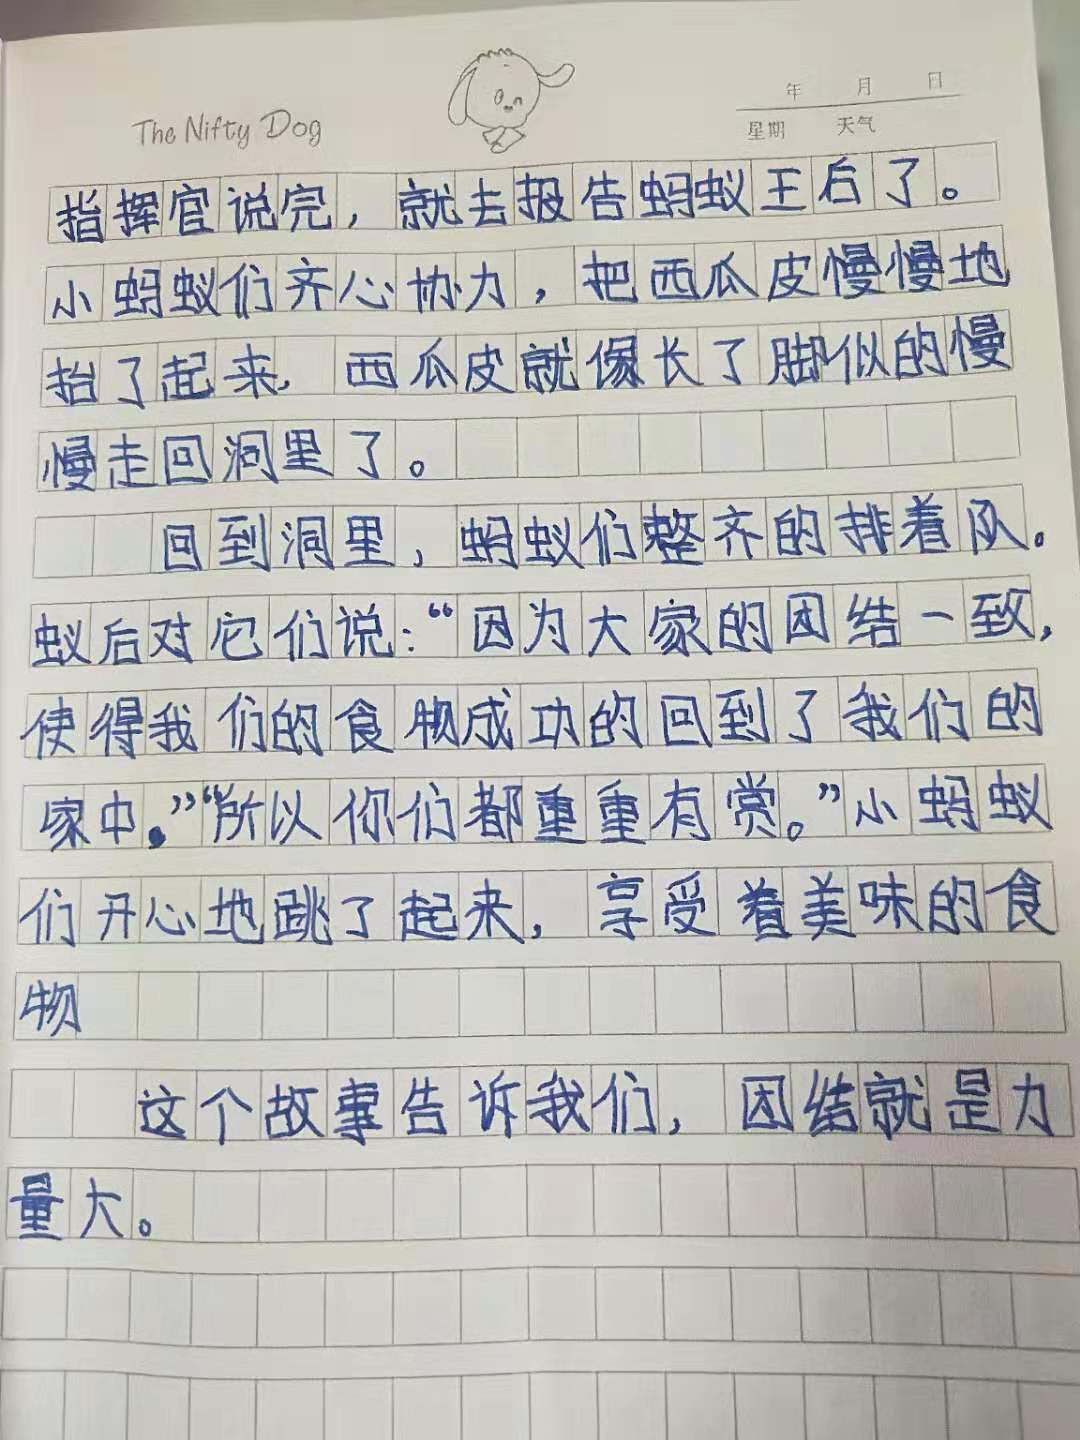 The Nifty Dog
年 月 日
星期 天气
指挥官说完，就去报告蚂蚁王后了。
小蚂蚁们齐心协力，把西瓜皮慢慢地
抬了起来，西瓜皮就像长了脚似的慢
慢走回洞里了。
回到洞里，蚂蚁们整齐的排着队。
蚁后对它们说：“因为大家的团结一致，
使得我们的食物成功的回到了我们的
家中。”“所以你们都重重有赏。”小蚂蚁
们开心地跳了起来，享受着美味的食
物
这个故事告诉我们，团结就是力
量大。